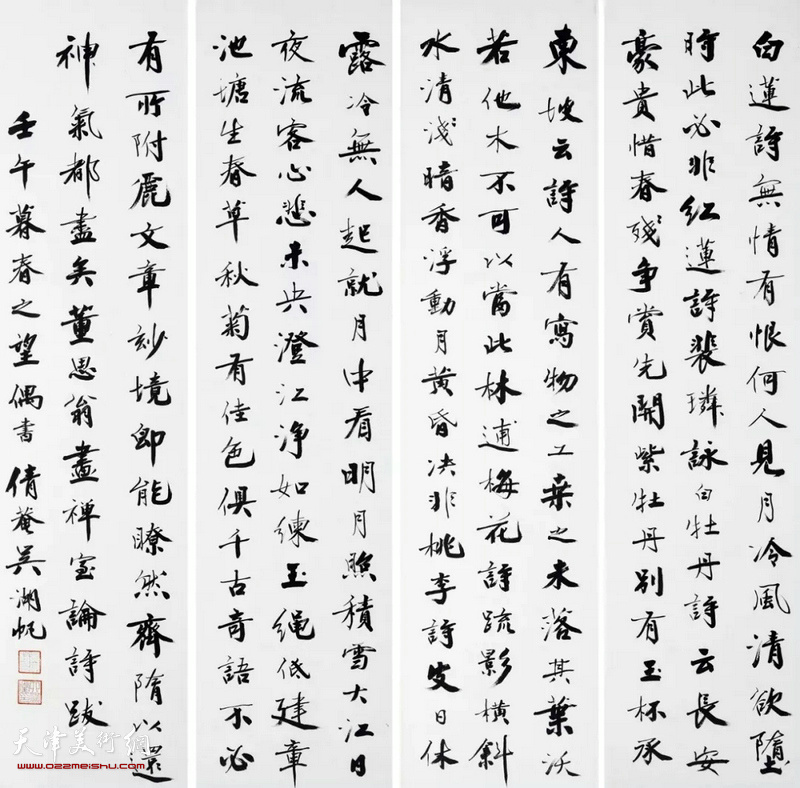 白蓮詩無情有恨何人見月冷風清欲墮
時此必非紅蓮詩裴璘詠白牡丹詩云長安
豪貴惜春殘爭賞先開紫牡丹別有玉杯承
東坡云詩人有寫物之工桑之未落其葉沃
若他木不可以當此林逋梅花詩疏影橫斜
水清淺暗香浮動月黃昏決非桃李詩皮日休
露冷無人起就月中看明月照積雪大江日
夜流客心悲未央澄江淨如練玉繩低建章
池塘生春草秋菊有佳色俱千古奇語不必
有所附麗文章妙境即能瞭然齊隋以還
神氣都盡矣董思翁畫禪室論詩跋
壬午暮春之望偶書 倩菴吳湖帆
天津美術網
www.022meishu.com